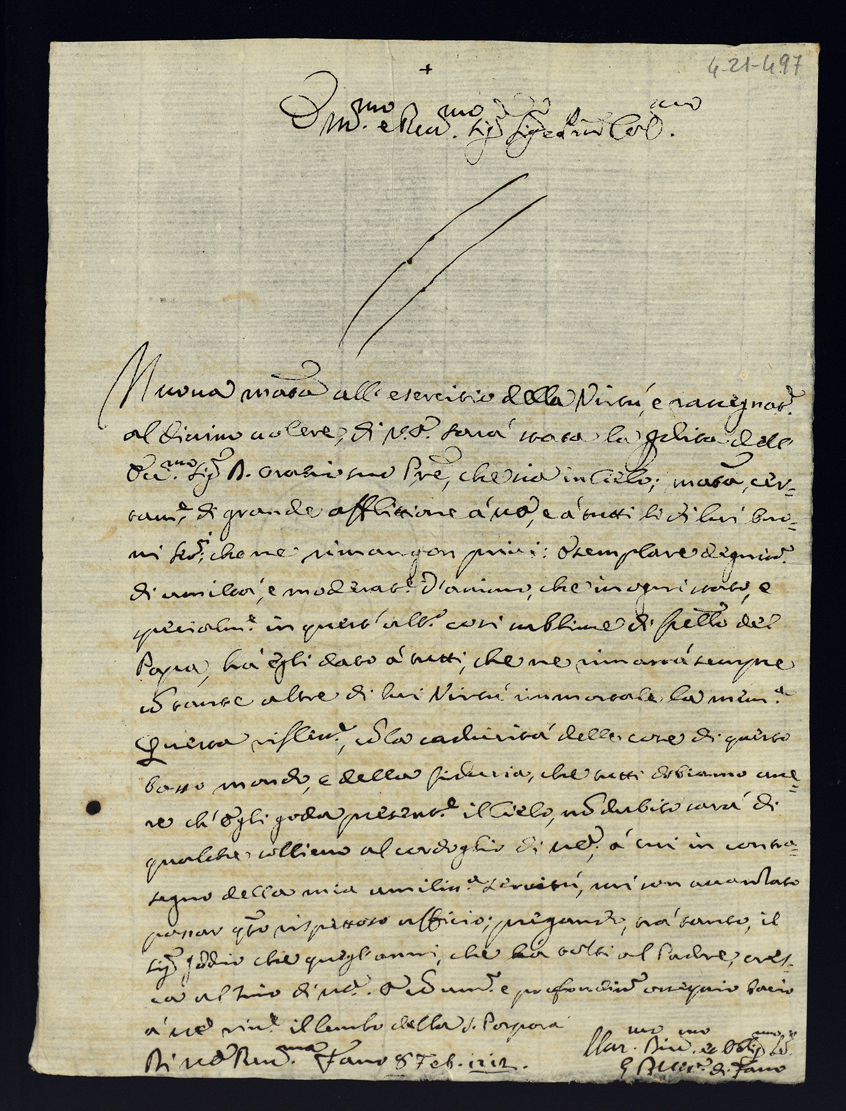 4-21-497
+
Em.mo e Rev.mo Sig.r Sig.r e Pne Col.mo
Nuova materia all'esercitio della Virtù, e rassegnat.e
al divino volere, di V.E. sarà stata la perdita dell
Ecc.mo Sig.r D. Oratio suo Pre, che sia in Cielo; materia, cer-
tam.e di grande afflittione à VE, e à tutti li di lui buo-
ni Ser.i, che ne rimangon privi: Esemplare degniss.o
di umiltà, e moderat.e d'animo, che in ogni stato, e
specialm.e in quest'alt.o così sublime di fratello del
Papa, hà egli dato à tutti, che ne rimarrà sempre
cō tante altre di lui Virtù immortale la mem.a
Questa rifless.e, cō la caducità delle cose di questo
basso mondo, e della fiducia, che tutti dobiamo ave-
re ch'Egli goda presentem.e il Cielo, nō dubito sarà di
qualche sollievo al cordoglio di VE, à cui in contra-
segno della mia umiliss.a servitù, mi son avanzato
passar q.sto rispettoso ufficio; pregando, trà tanto, il
Sig.r Iddio che quegl'anni, che hà tolti al Padre, cres-
ca al Figlio di VE. E cō um.e e profondiss.o ossequio bacio
à VE riv.e il lembo della S. Porpora
Di VE Rev.ma Fano 8 Feb. 1712.
Um.mo Div.mo et Obblig.mo Ser.
di Fano